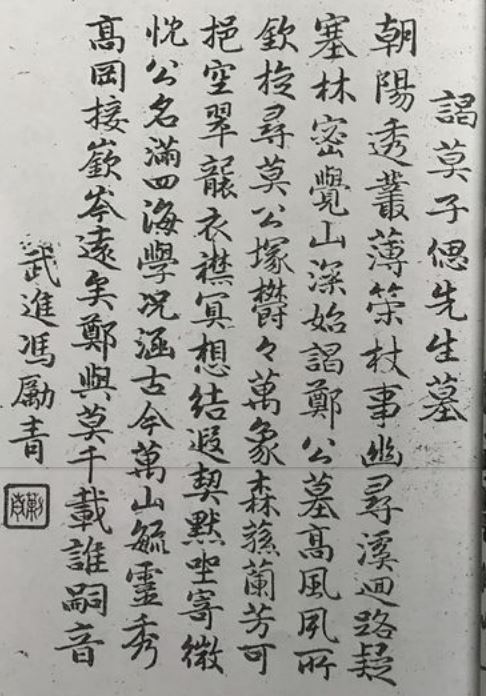 謁莫子偲先生墓
朝陽透叢薄策杖事幽尋溪迴路疑
塞林密覺山深始謁鄭公墓高風夙所
欽旋尋莫公塚欝々萬象森蓀蘭芳可
挹空翠襲衣襟冥想結遐契默坐寄微
忱公名滿四海學況涵古今萬山毓靈秀
高岡接嶔岑遠矣鄭與莫千載誰嗣音
武進馮勵青